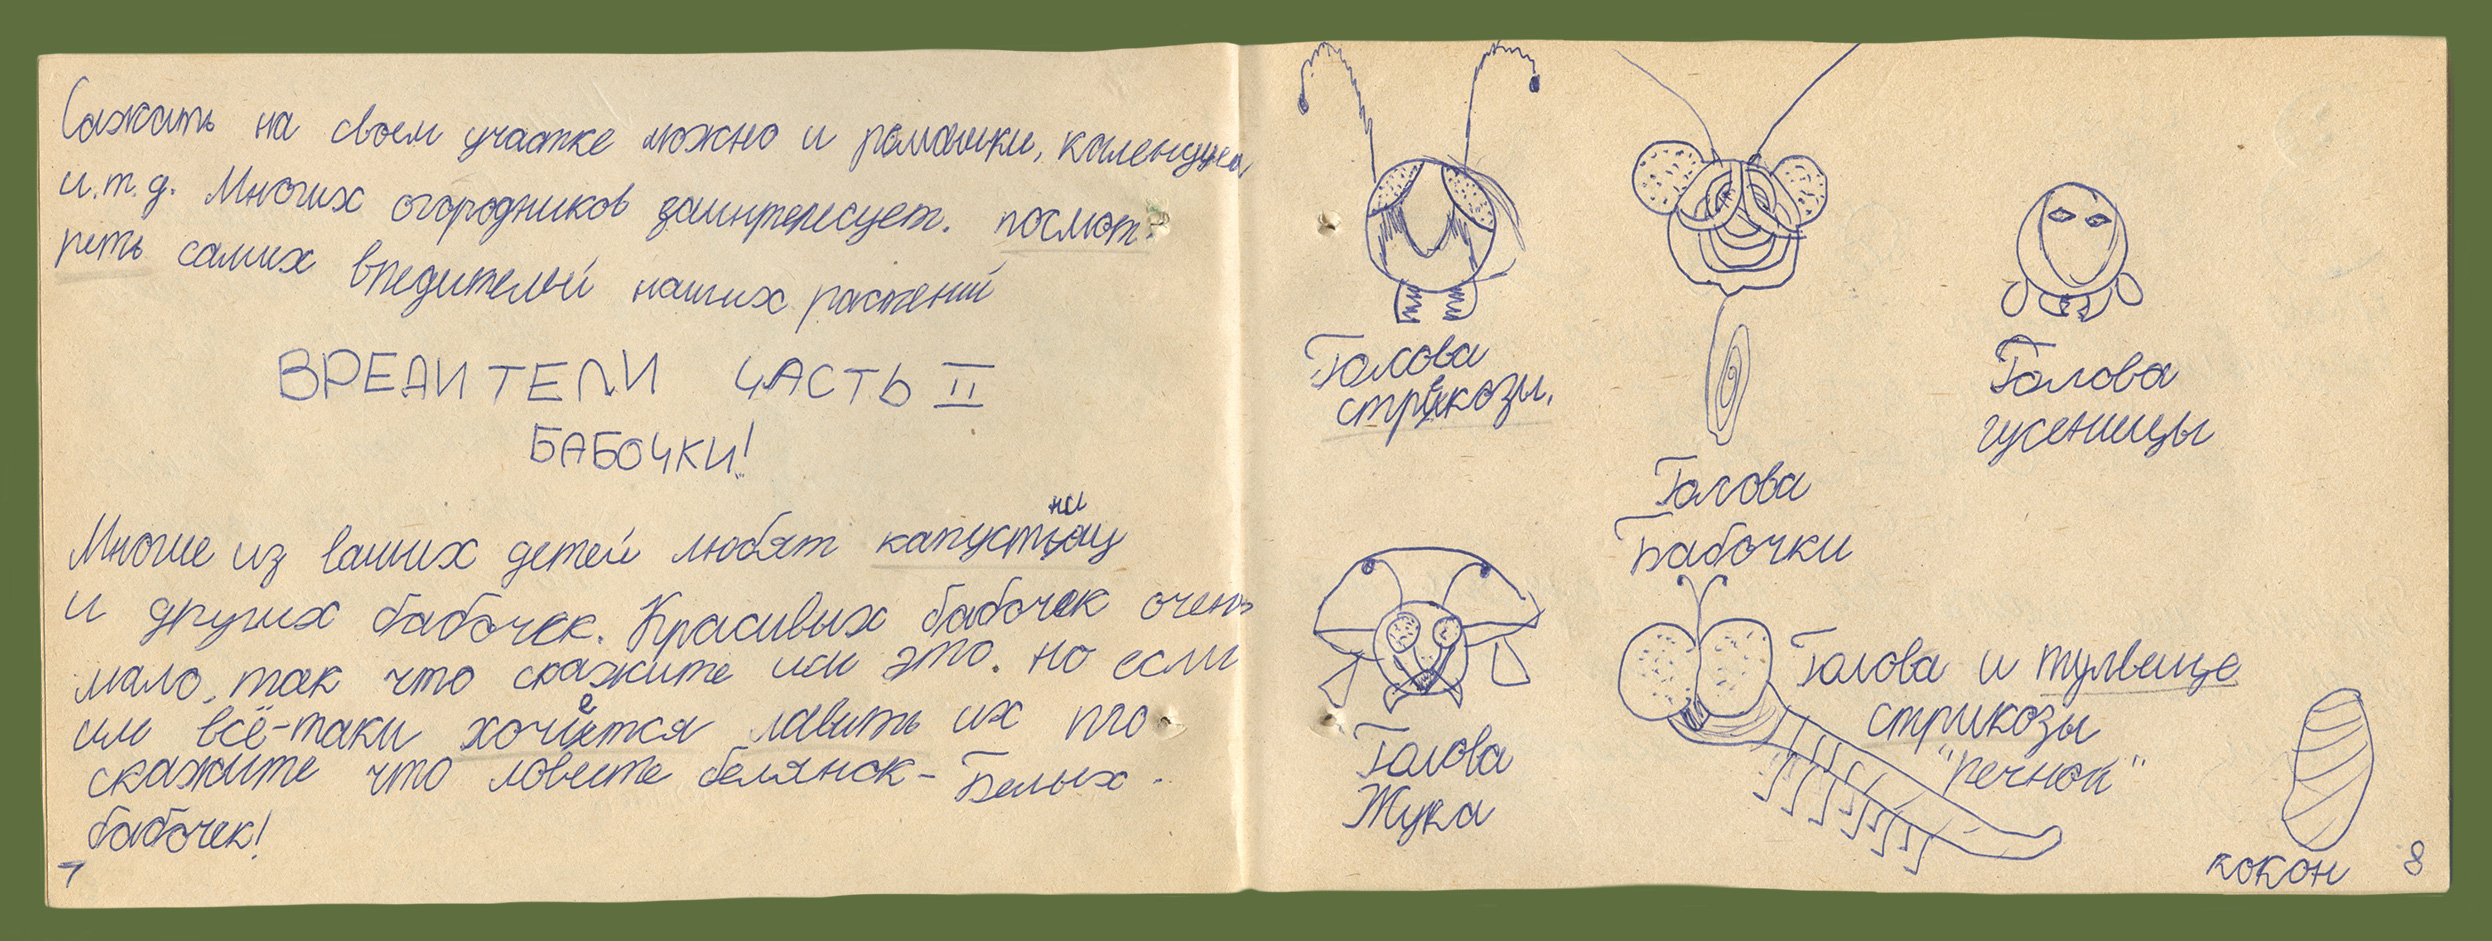 Сажать на своем участке можно и ромашки, календулу,
и.т.д. Многих огородников заинтересует. посмот-
реть самих вредителей наших растений
ВРЕДИТЕЛИ ЧАСТЬ II
БАБОЧКИ!
Многие из ваших детей любят капустниц
и других бабочек. Красивых бабочек очень
мало, так что скажите им это. но если
им всё-таки хочется ловить их то
скажите что ловите белянок - Белых -
бабочек!
7
Голова
стрикозы.
Голова
Бабочки
Голова
гусеницы
Голова
Жука
Голова и тулвище
стрикозы
"речной"
кокон
8